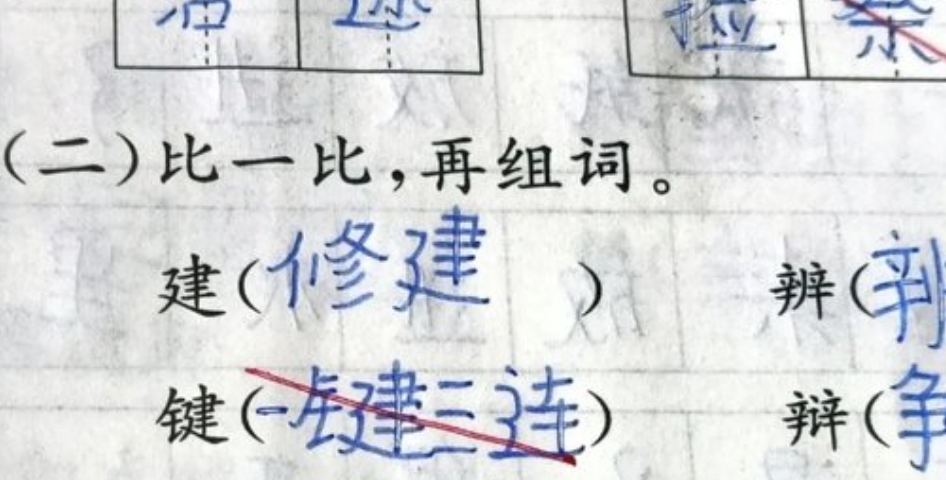 (二)比一比,再组词。
建(修建) 辨(
键(一键三连) 辩(争